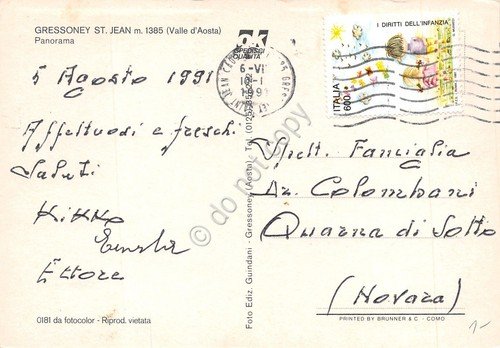 GRESSONEY ST. JEAN m. 1385 (Valle d'Aosta)
Panorama
SPEDISCI
QUALITÀ
I DIRITTI DELL'INFANZIA
ITALIA
600
5 Agosto 1991
Affettuosi e freschi
Saluti
Kikko
Ettore
0181 da fotocolor - Riprod. vietata
Foto Ediz. Guindani - Gressoney (Aosta) - Tel. (0125)
Spett. Famiglia
Az. Colombani
Quarna di Sotto
(Novara)
PRINTED BY BRUNNER & C. - COMO
© do not copy